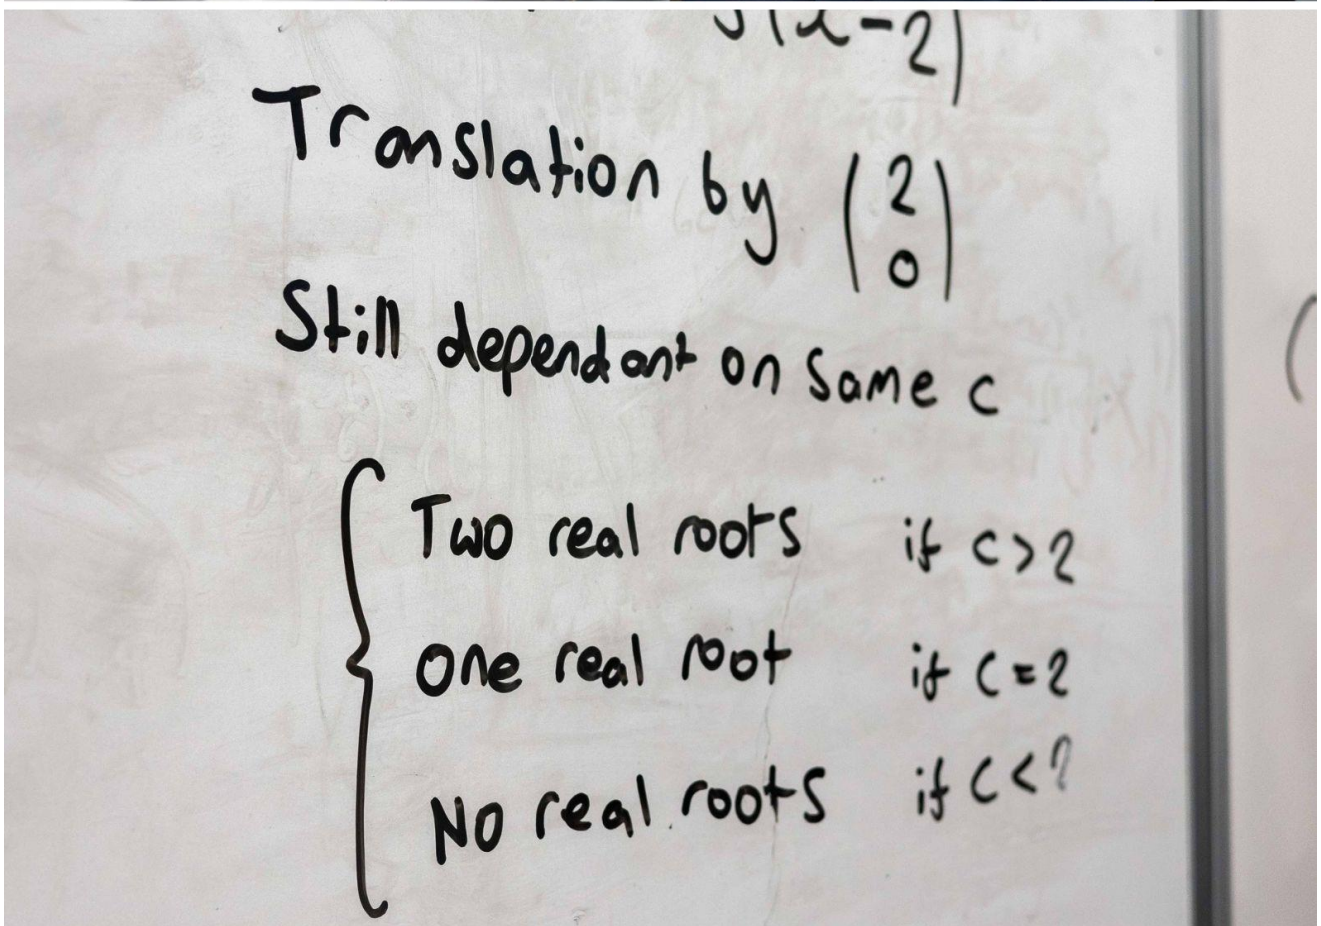 (x-2)
Translation by (2
0)
Still dependant on same c
Two real roots if c>2
One real root if c=2
No real roots if c<